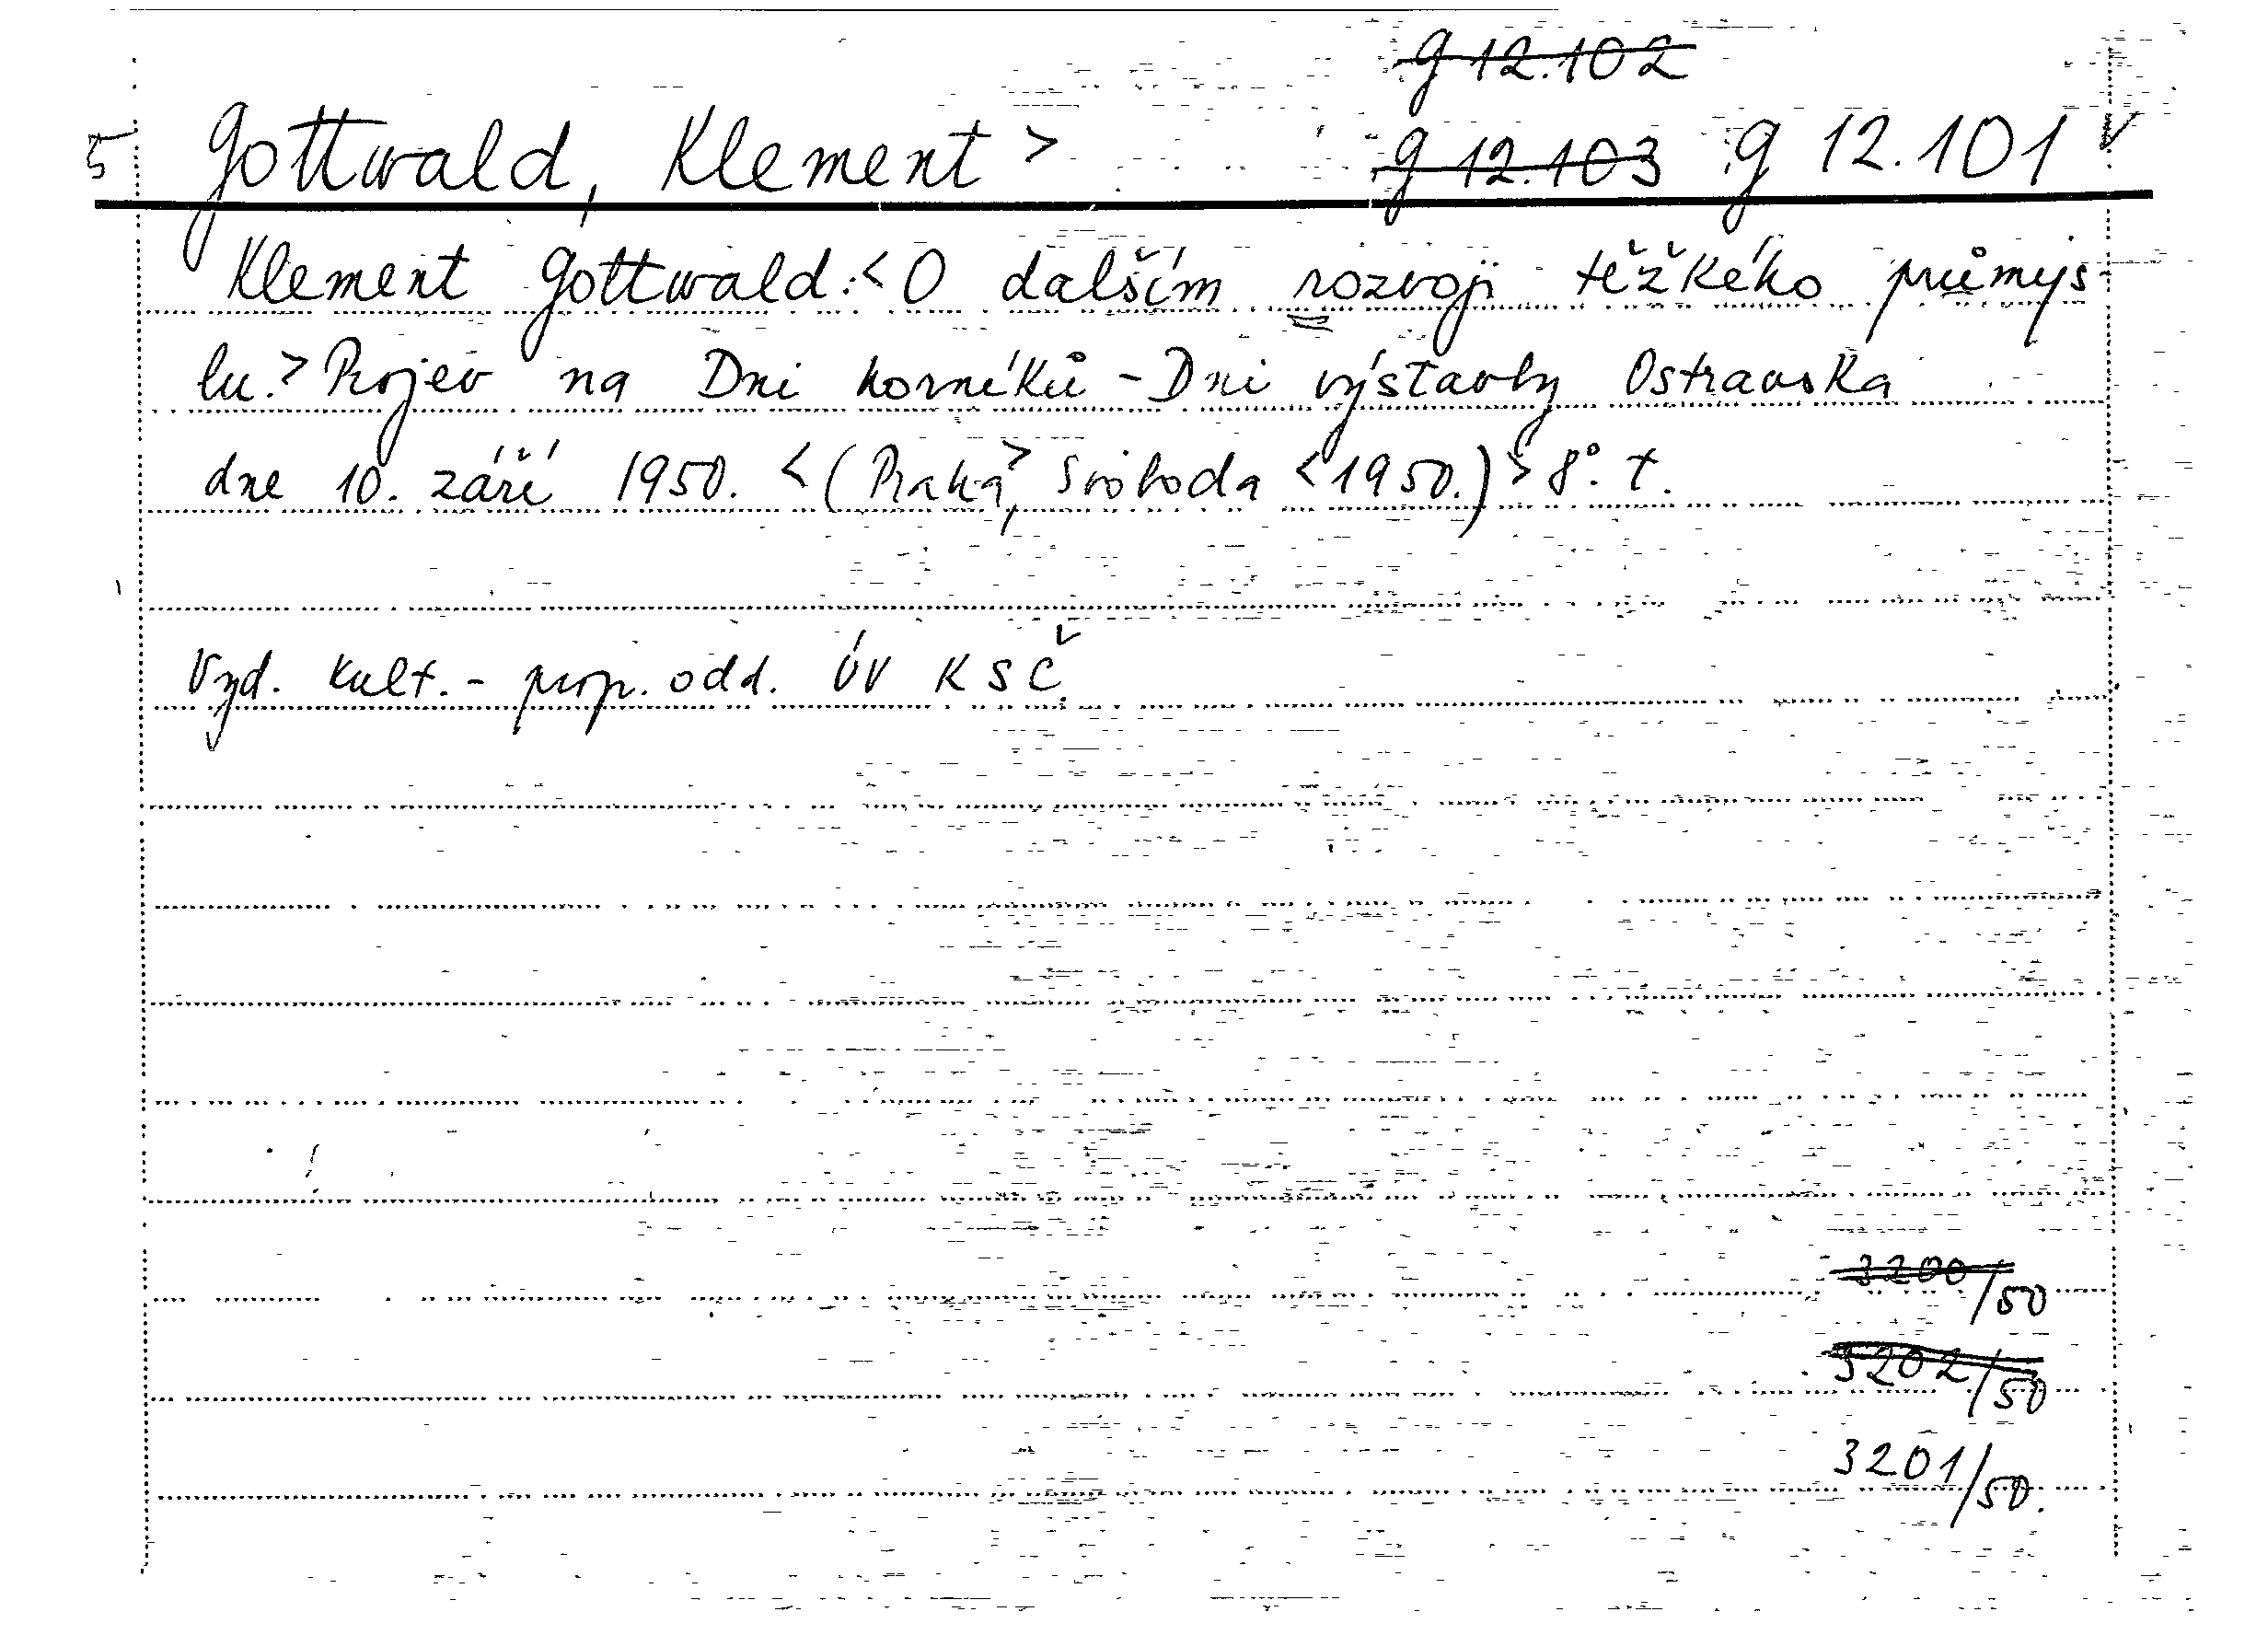 g 12.102
5 Gottwald, Klement > g 12.103 g 12.101 v
Klement Gottwald: < O dalším rozvoji těžkého průmys-
lu. > Projev na Dni horníků - Dni výstavby Ostravska
dne 10. září 1950. < (Praha, > Svoboda < 1950.) > 8°. t.
Vyd. kult.- prop. odd. ÚV KSČ.
3200/50
3202/50
3201/50.